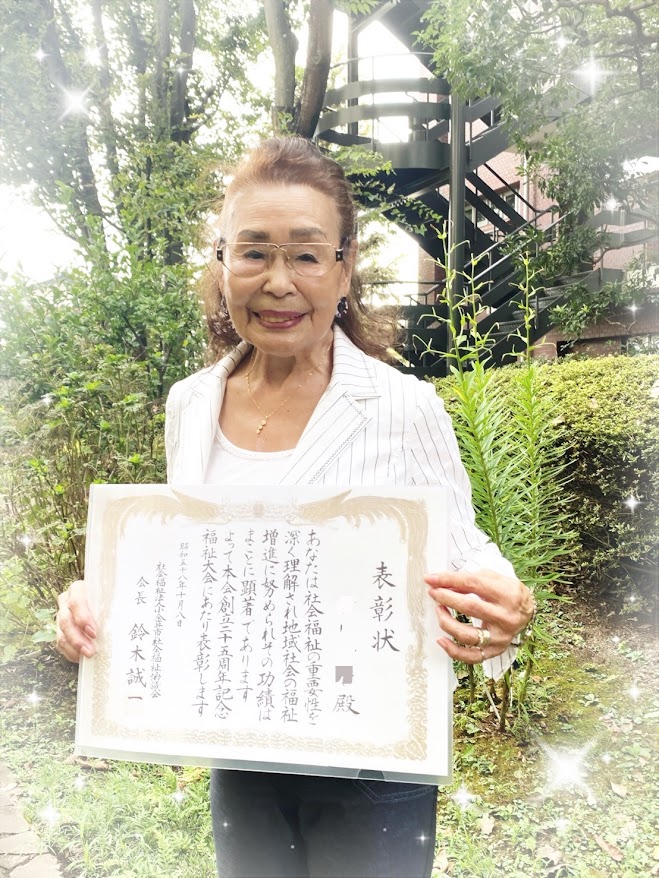 表彰状
殿
あなたは社会福祉の重要性を
深く理解され地域社会の福祉
増進に努められその功績は
まことに顕著であります
よって本会創立二十五周年記念
福祉大会にあたり表彰します
昭和五十八年十月八日
会長 鈴木誠一